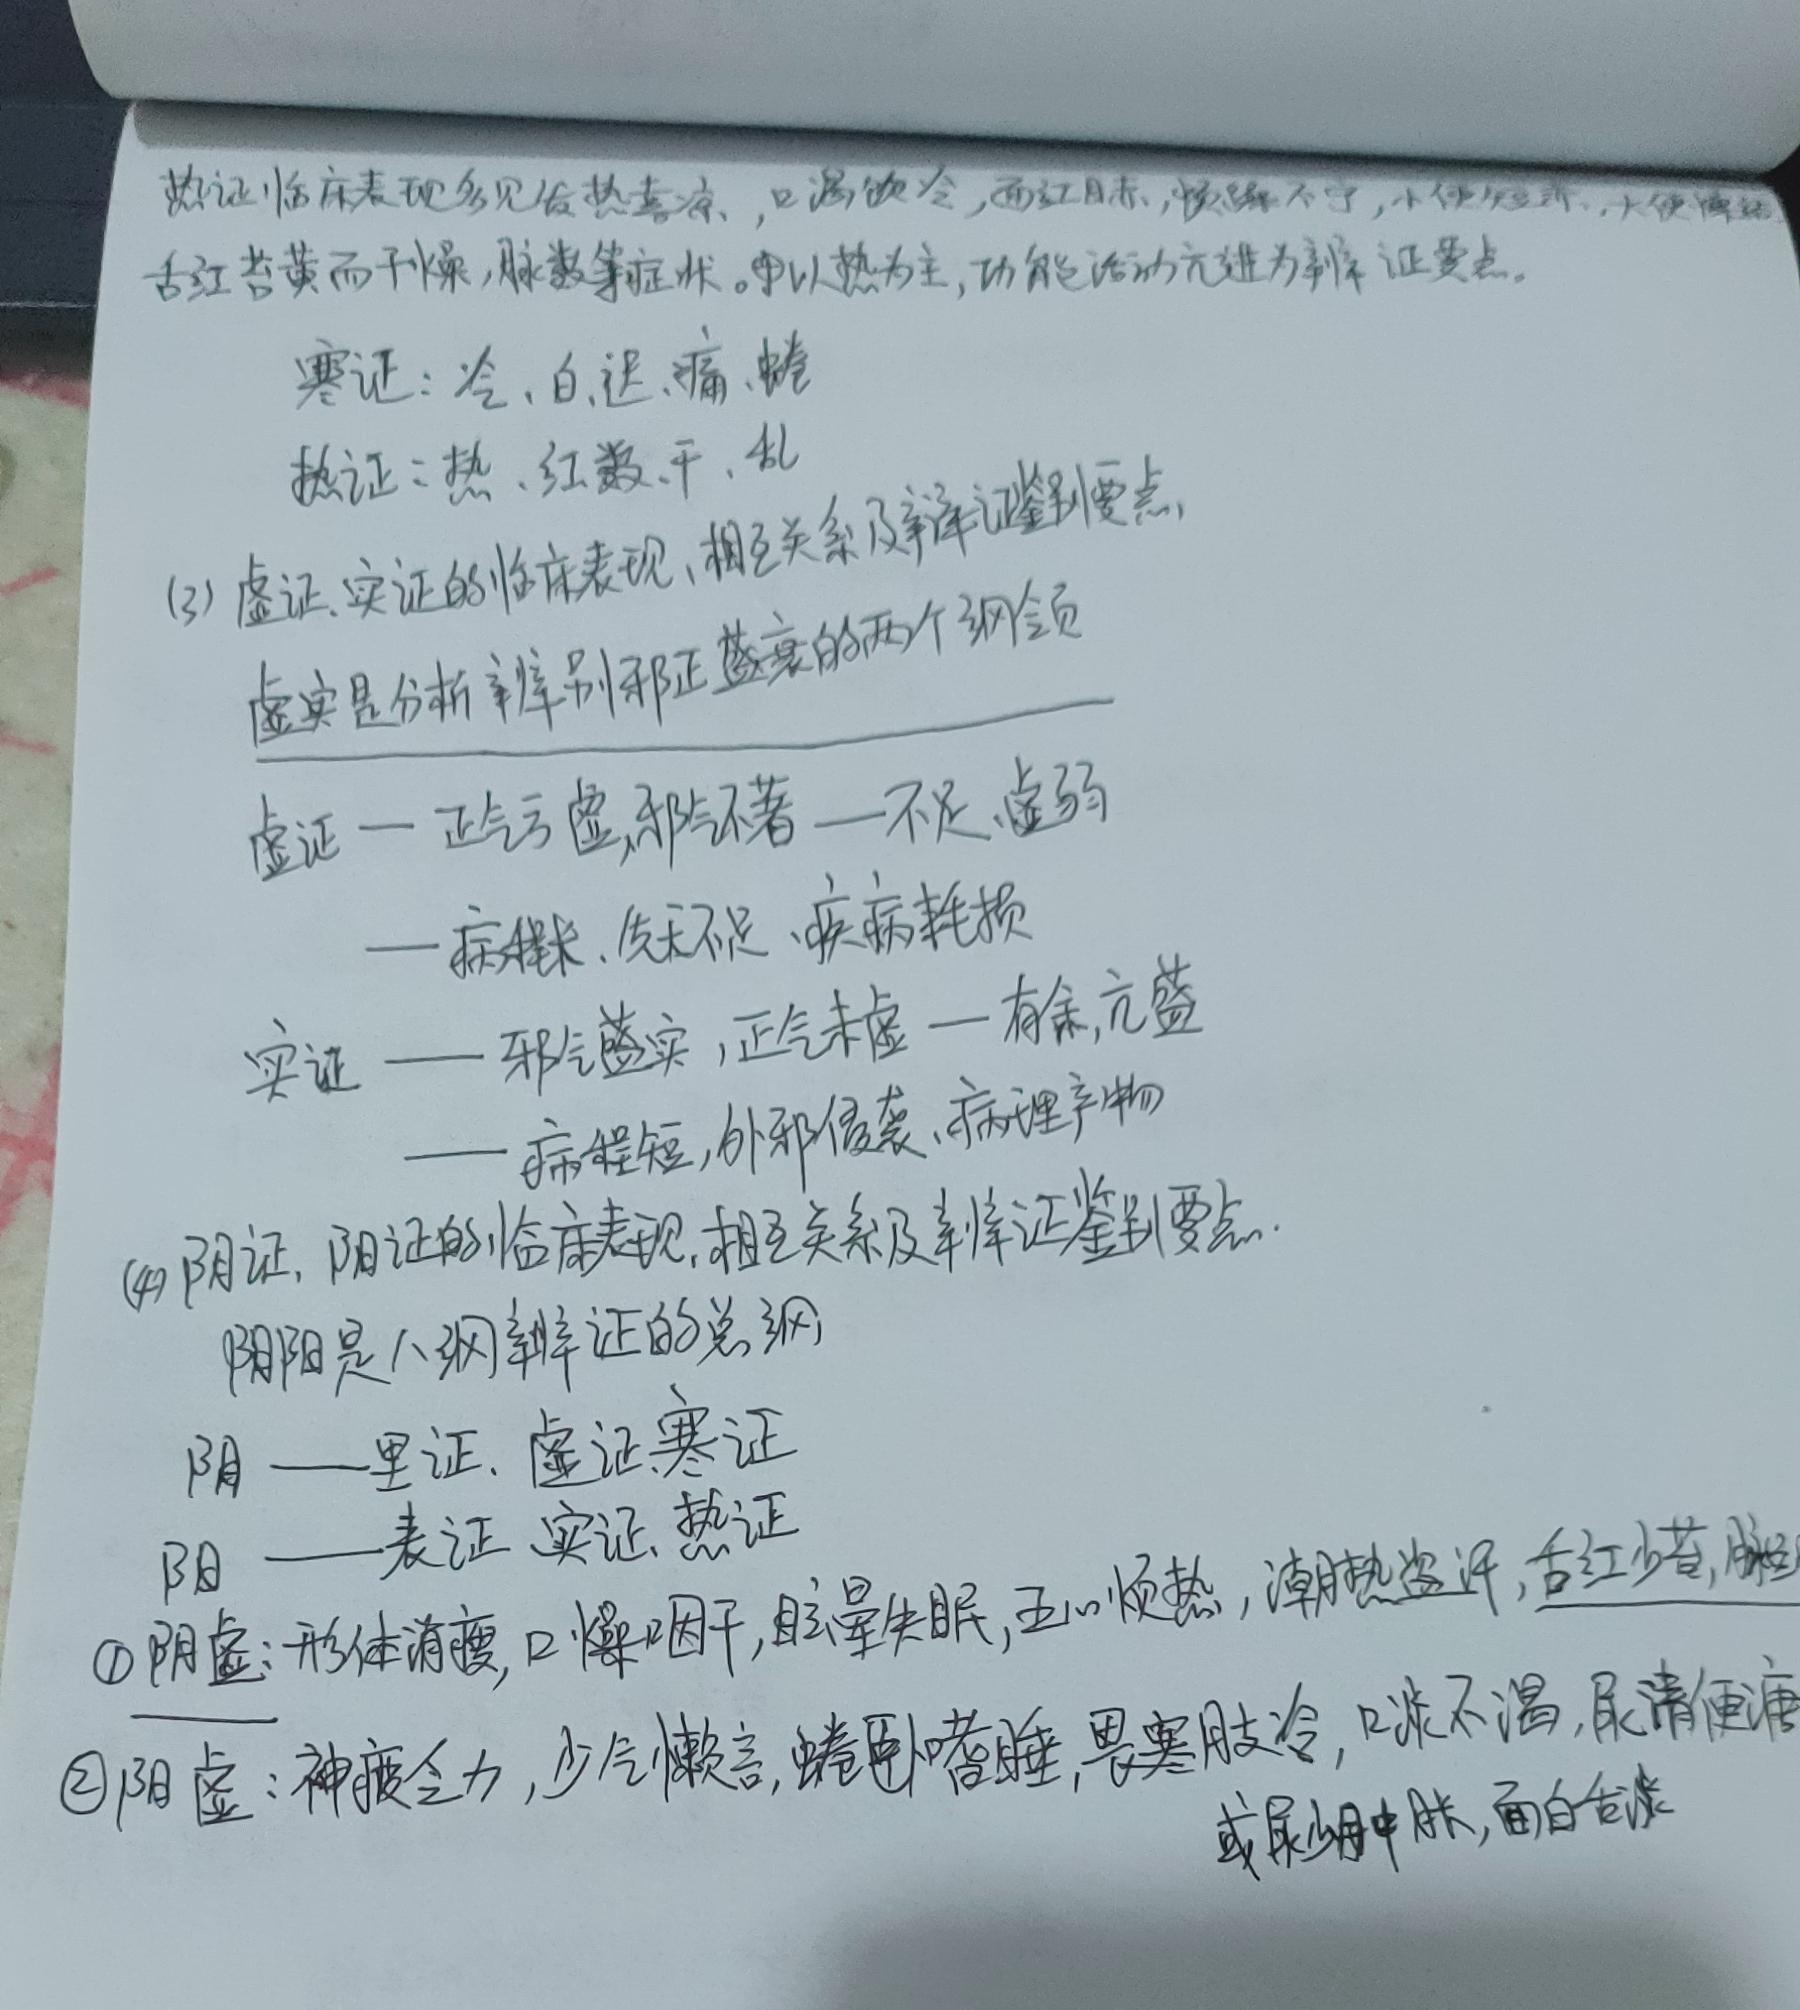 热证临床表现多见发热喜凉，口渴饮冷，面红目赤，烦躁不宁，小便短赤，大便
舌红苔黄而干燥，脉数等症状。以热为主，功能活动亢进为辨证要点。
寒证：冷、白、迟、痛、蜷
热证：热、红、数、干、乱
(3) 虚证、实证的临床表现、相互关系及辨证鉴别要点
虚实是分析辨别邪正盛衰的两个纲领
虚证 — 正气亏虚，邪气不著 — 不足、虚弱
— 病程长、先天不足、疾病耗损
实证 — 邪气盛实，正气未虚 — 有余，亢盛
— 病程短，外邪侵袭、病理产物
(4) 阴证、阳证的临床表现，相互关系及辨证鉴别要点.
阴阳是八纲辨证的总纲
阴 — 里证、虚证、寒证
阳 — 表证、实证、热证
①阴虚：形体消瘦，口燥咽干，眩晕失眠，五心烦热，潮热盗汗，舌红少苔，脉
②阳虚：神疲乏力，少气懒言，蜷卧嗜睡，畏寒肢冷，口淡不渴，尿清便溏
或尿少肿胀，面白舌淡